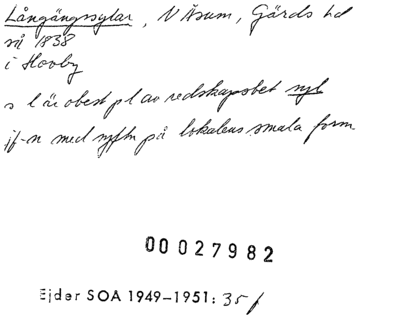 Långängssylar, N Åsum, Gärds hd
så 1838
i Hovby
s l är obest pl av redskapsbet syl
jf-n med syftn på lokalens smala form
00 027982
Ejder SOA 1949–1951: 35 f